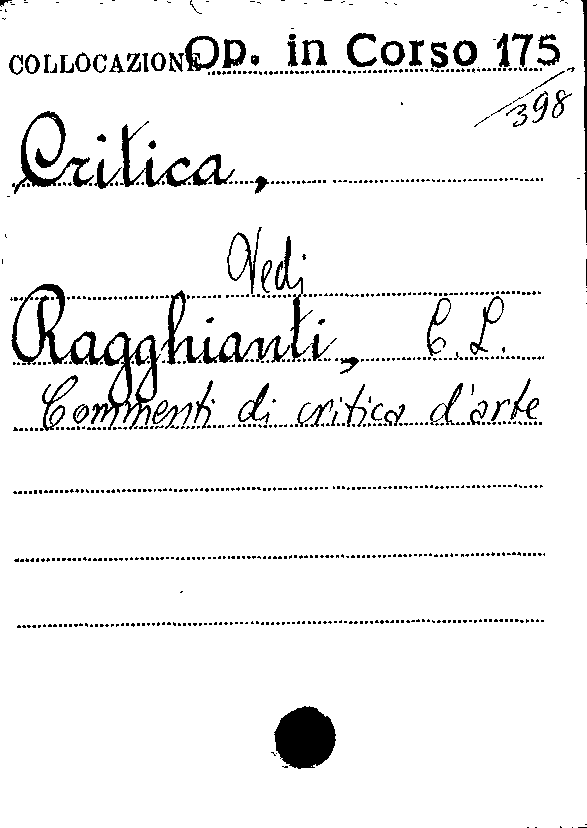 COLLOCAZIONE Op. in Corso 175
/398
Critica,
Vedi
Ragghianti, C. L.
Commenti di critica d'arte